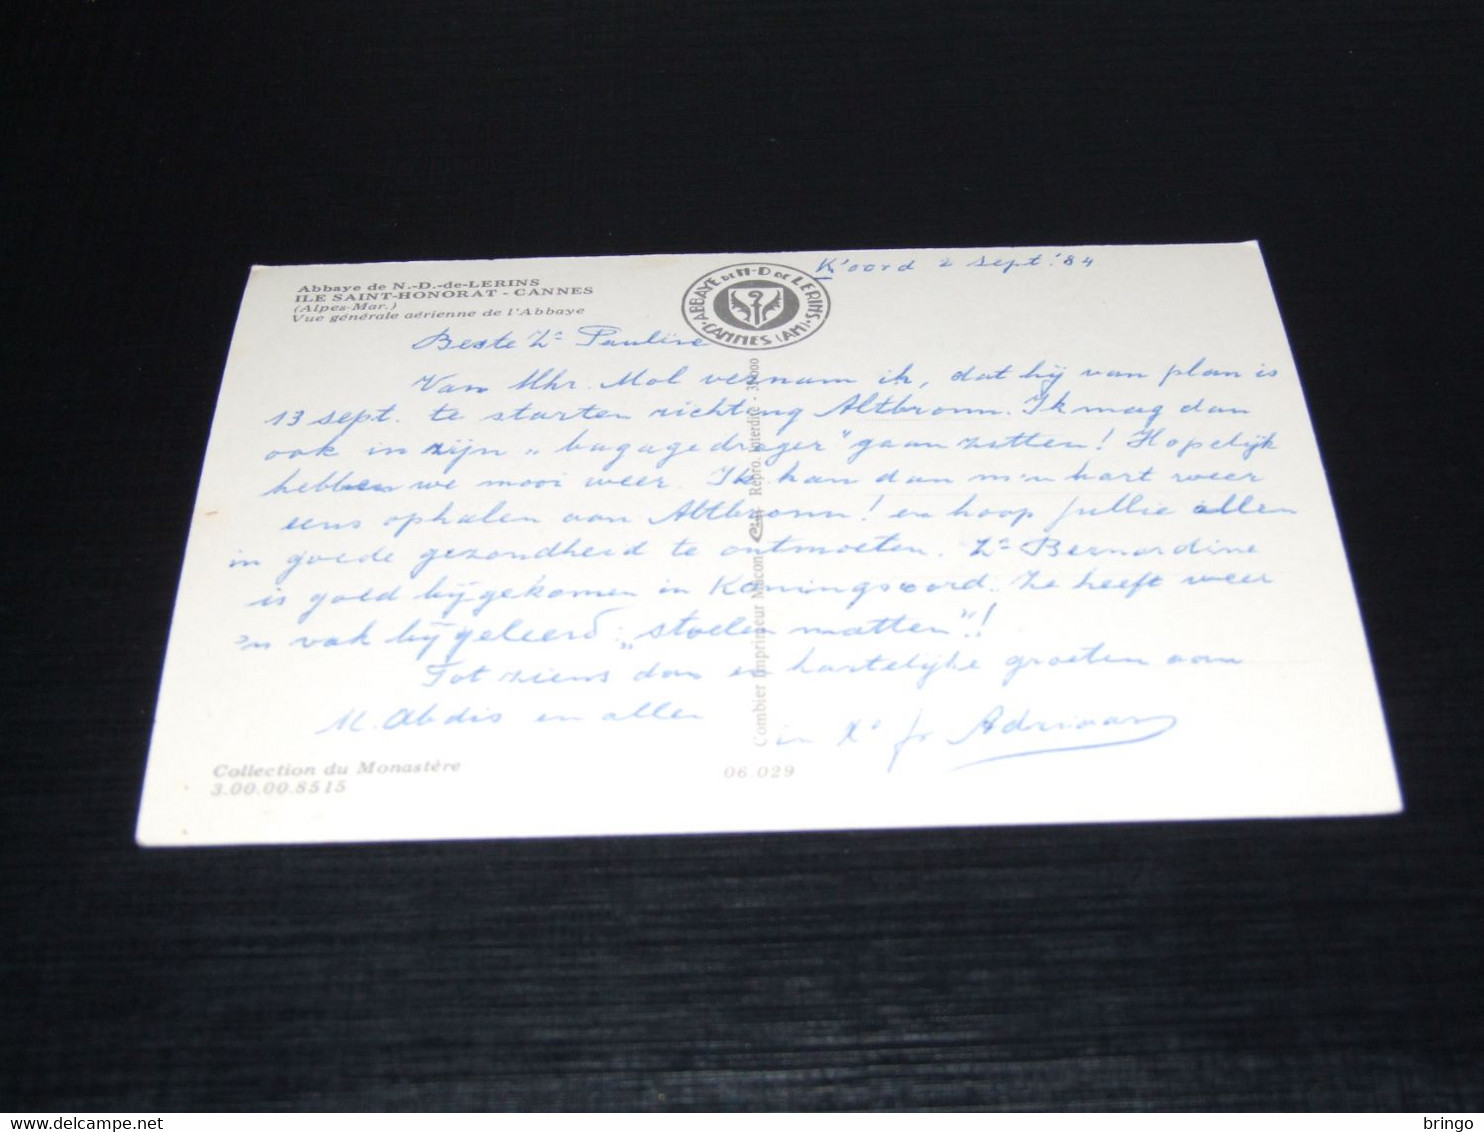 Abbaye de N.-D.-de-LERINS
ILE SAINT-HONORAT - CANNES
(Alpes-Mar.)
Vue générale aérienne de l'Abbaye
ABBAYE DE N-D DE LERINS
CANNES (AM)
K'oord 2 sept. '84
Beste Zr Pauline
Van Mhr. Mol vernam ik, dat hij van plan is
13 sept. te starten richting Altbronn. Ik mag dan
ook in zijn „bagagedrager" gaan zitten! Hopelijk
hebben we mooi weer. Ik kan dan m'n hart weer
eens ophalen aan Altbronn! en hoop jullie allen
in goede gezondheid te ontmoeten. Zr Bernardine
is goed bijgekomen in Koningsoord. Ze heeft weer
'n vak bijgeleerd: „stoelen matten"!
Tot ziens dan en hartelijke groeten aan
M. Abdis en allen
in Xo fr Adriaan
Combier Imprimeur Macon Cim Repro. Interdite
Collection du Monastère
3.00.00.8515
06.029
bringo